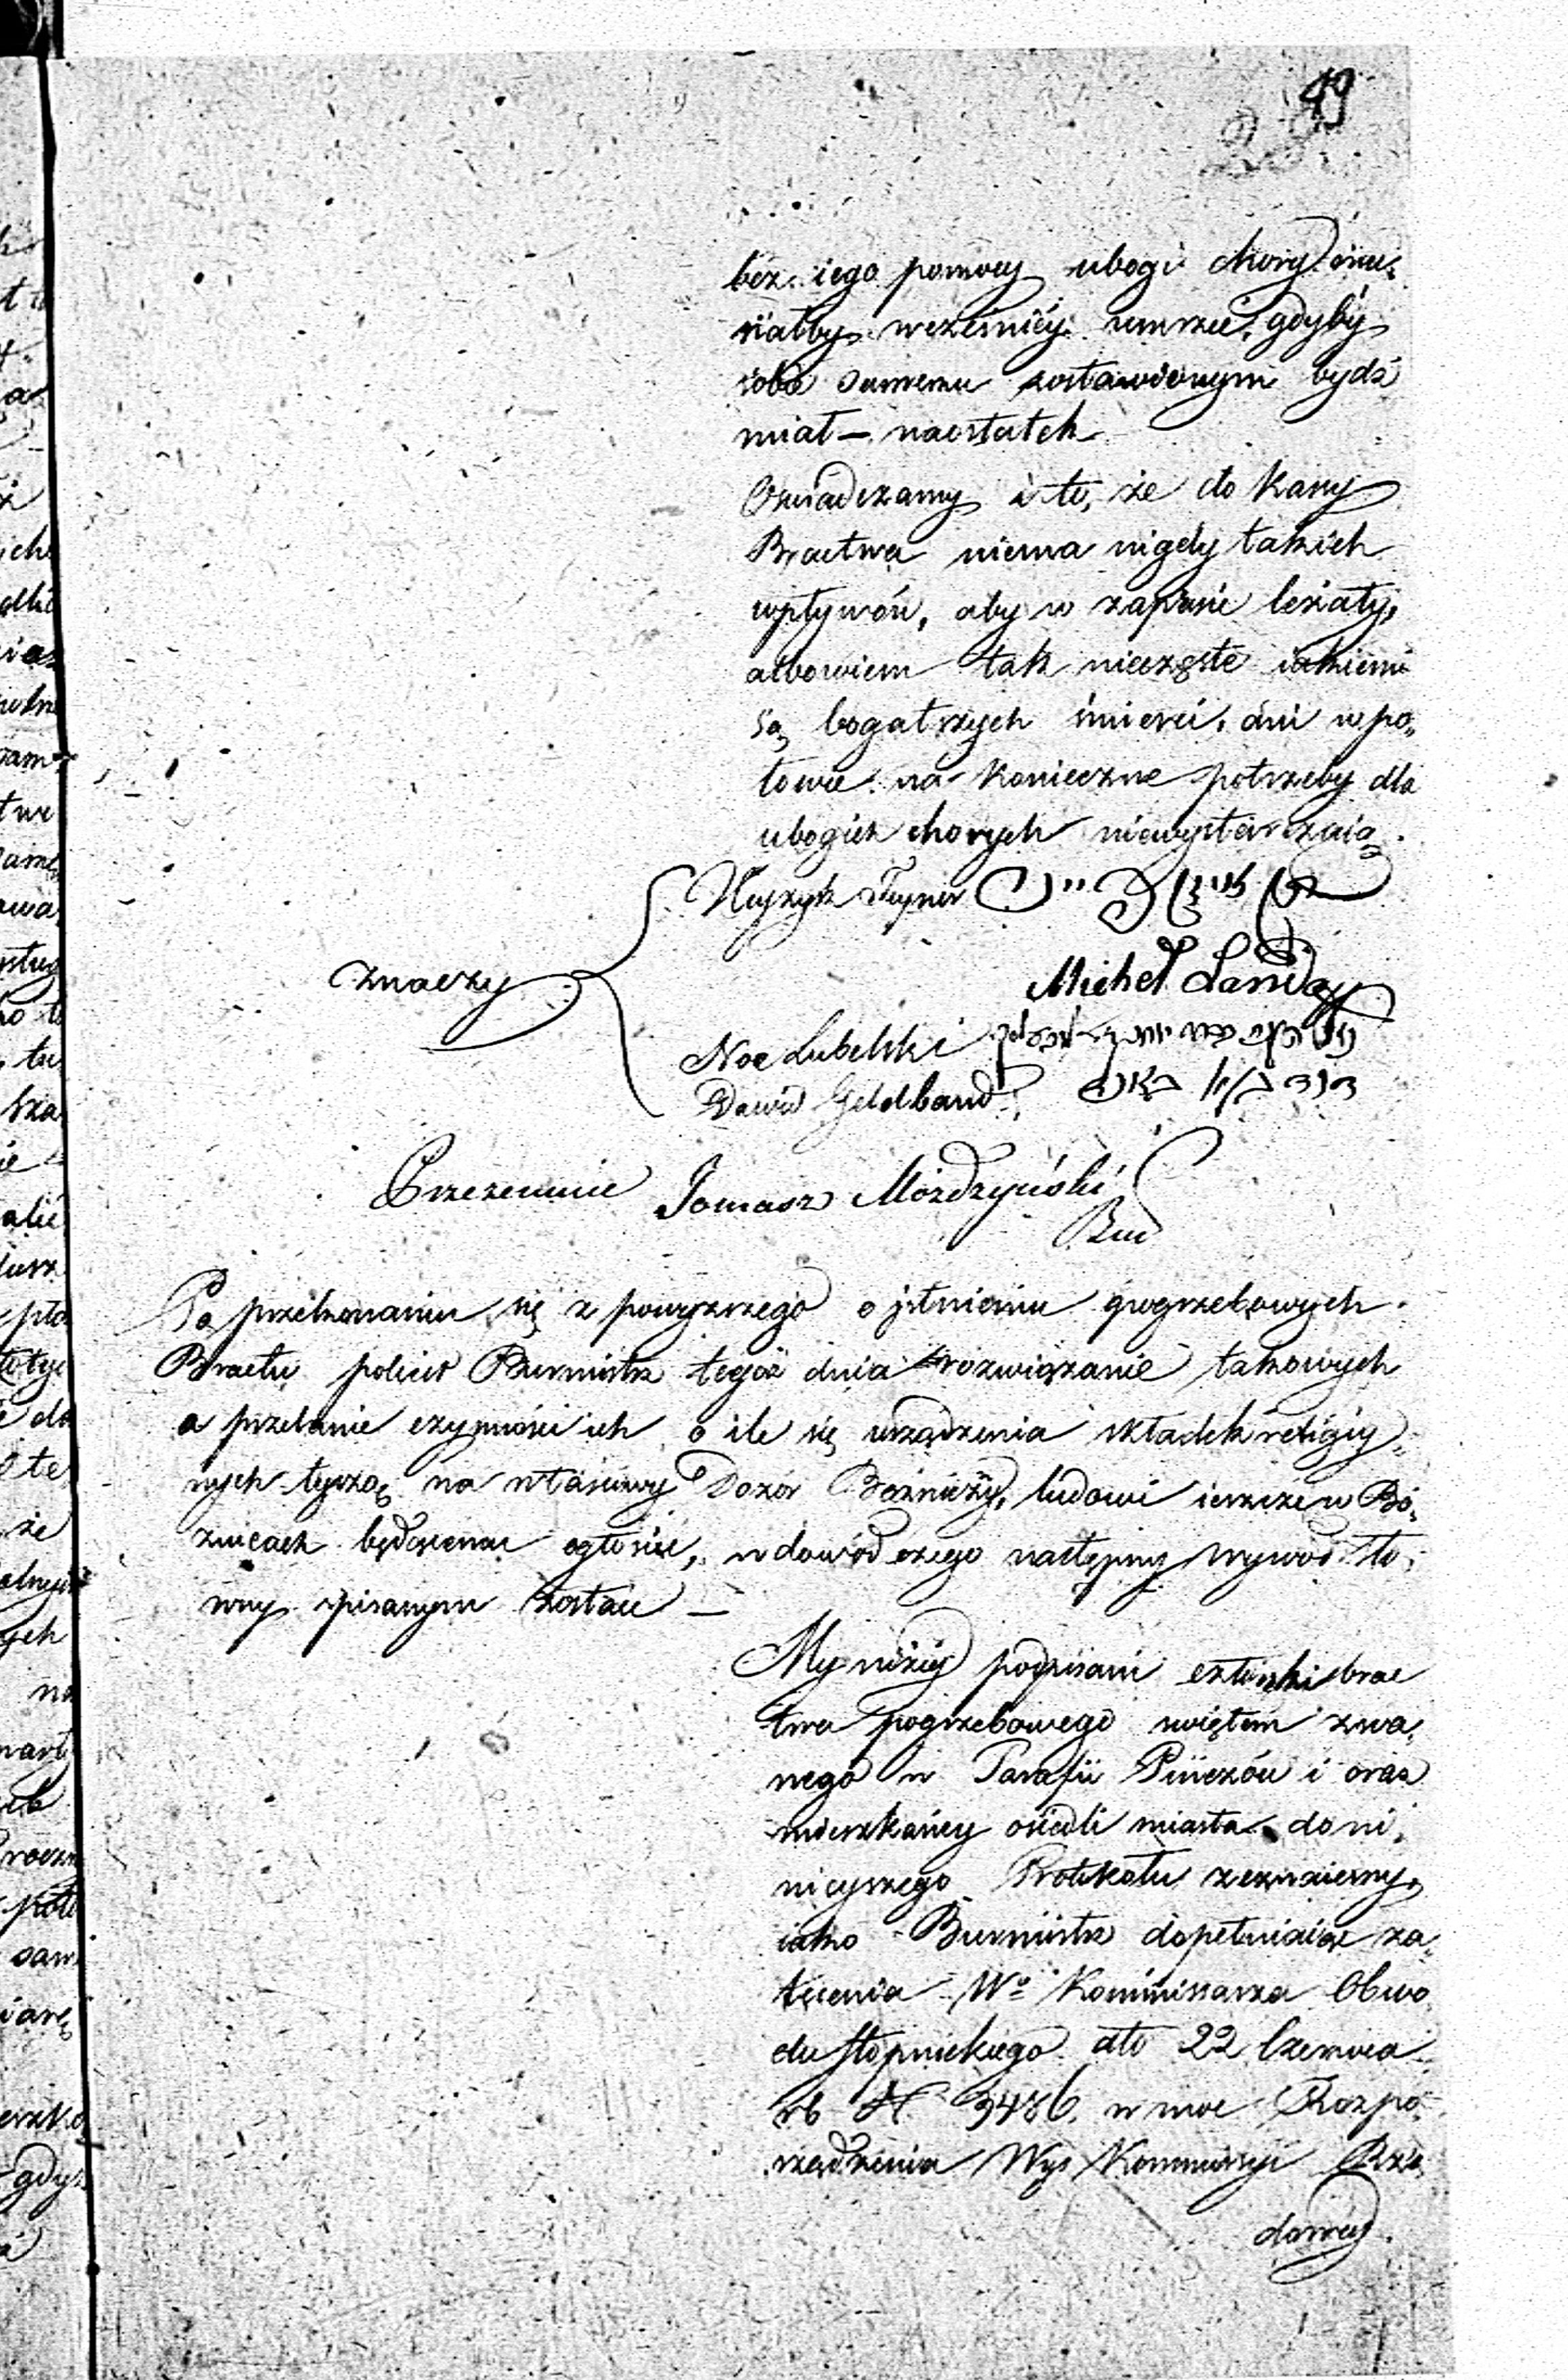 49
bez iego pomocy ubogi chory mu,
siałby wcześniéy umrzeć, gdyby
sobie samemu zostawionym bydź
miał — naostatek
Oświadczamy i to, że do Kassy
Bractwa niema nigdy takich
wpływów, aby w zapasie leżały,
albowiem tak nieczęste iakiemi
są bogatszych śmierci, ani w po,
łowie na konieczne potrzeby dla
ubogich chorych niewystarczaią.
Hayzyk
Michel Landay
znaczy
Noe Lubelski
Dawid Geldband
דוד
Przezemnie Tomasz Możdżyński
Bur
Po przekonaniu się z powyższego o jstnieniu pogrzebowych
Bractw polecił Burmistrz tegoż dnia rozwiązanie takowych
a przelanie czynności ich o ile się urządzenia składek religiy,
nych tyczą na właściwy Dozór Bóżniczy, ludowi ieszcze w Bó,
żnicach będącemu ogłosić, w dowód czego następny wywód sło,
wny spisanym został —
My niżéy podpisani członki brac
twa pogrzebowego świętem zwa,
nego w Parafii Pińczów i oraz
mieszkańcy osiedli miasta do ni,
nieyszego Protokołu zeznaiemy,
iako Burmistrz dopełniaiąc za,
lecenia Wo Kommissarza Obwo
du Stopnickiego dto 22 Czerwca
rb N. 3486 w moc Rozpo,
rządzenia Wys Kommissyi Rzą
dowéy